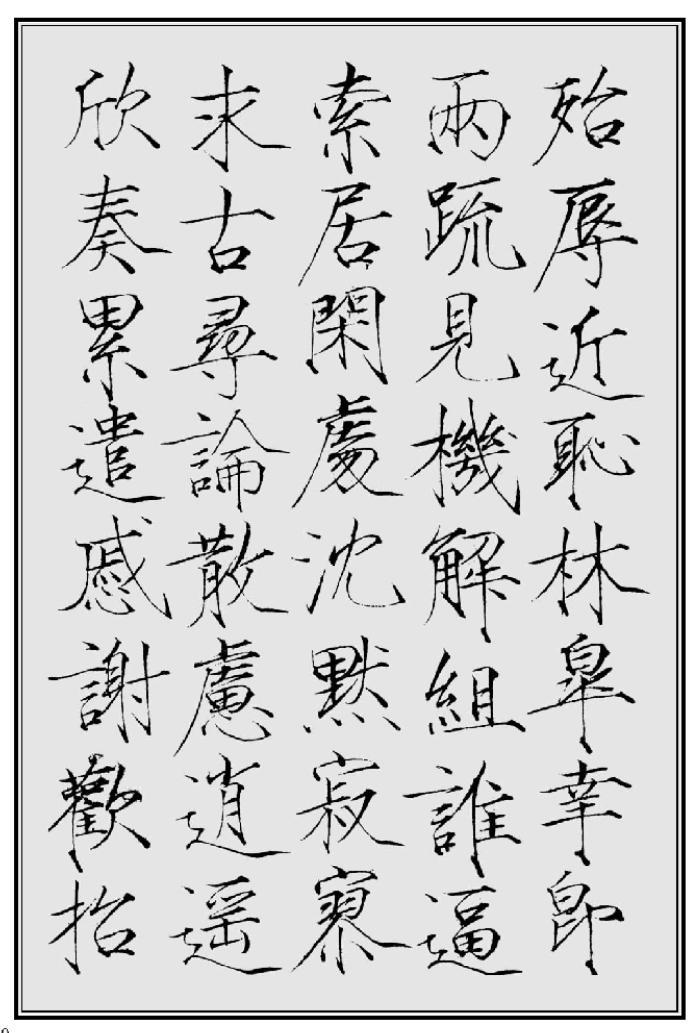 殆辱近恥林皋幸即
兩疏見機解組誰逼
索居閑處沈默寂寥
求古尋論散慮逍遙
欣奏累遣慼謝歡招